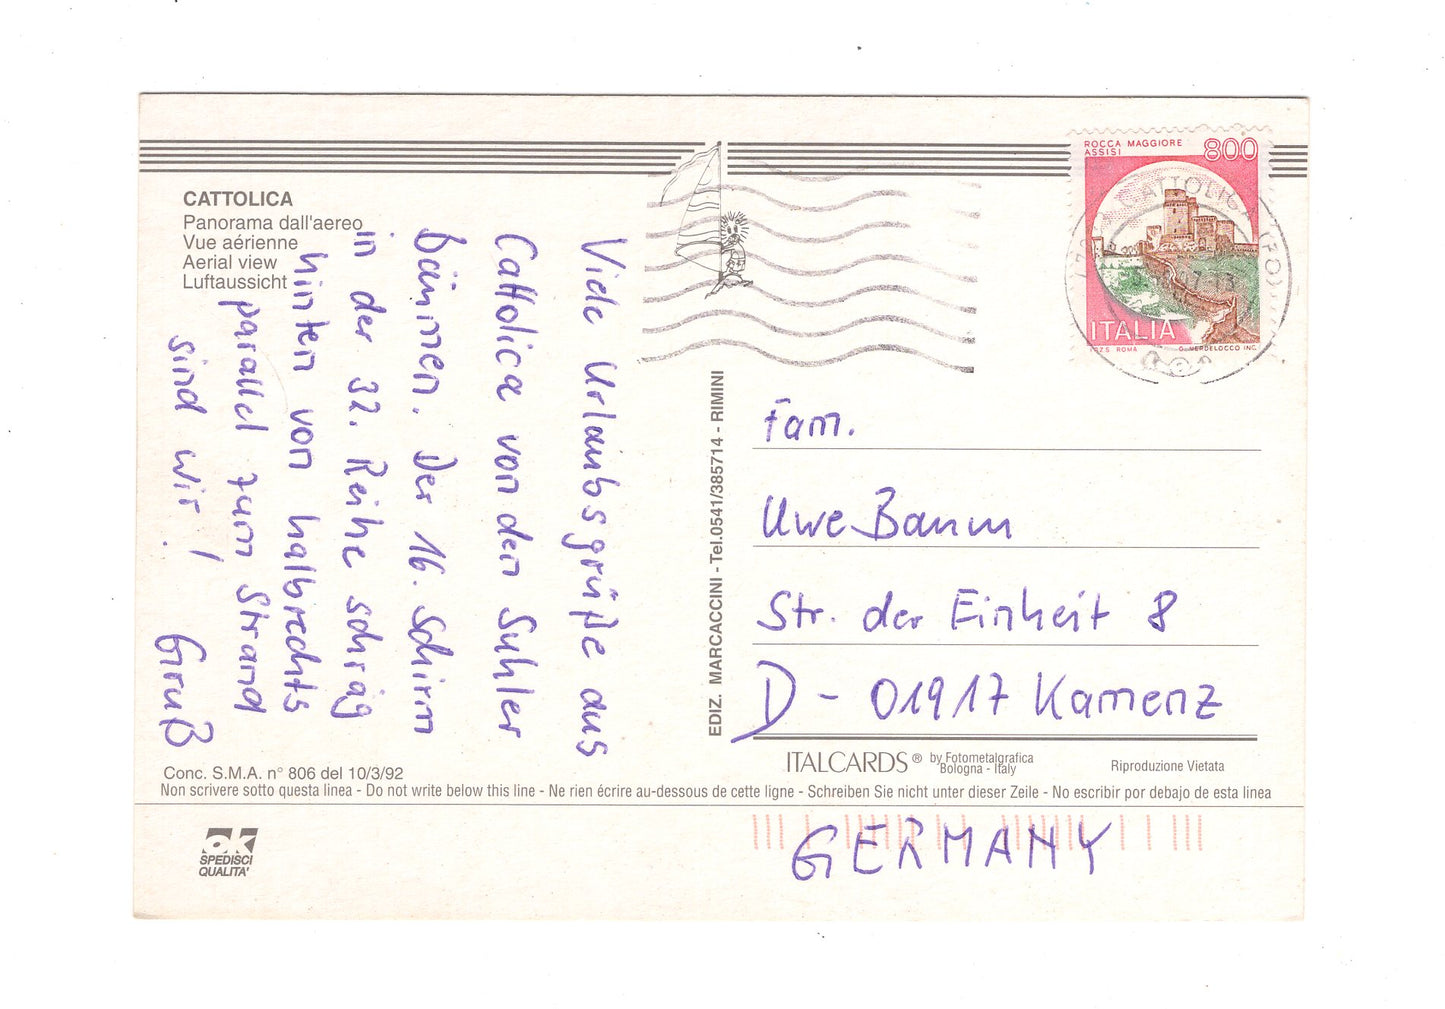 CATTOLICA
Panorama dall'aereo
Vue aérienne
Aerial view
Luftaussicht
Viele Urlaubsgrüße aus
Cattolica von den Suhler
bäumen. Der 16. Schirm
in der 32. Reihe schräg
hinten von halbrechts
parallel zum Strand
sind wir!
Gruß
Conc. S.M.A. n° 806 del 10/3/92
EDIZ. MARCACCINI - Tel.0541/385714 - RIMINI
ROCCA MAGGIORE
ASSISI
800
ITALIA
I.P.Z.S. ROMA G. VERDELOCCO INC.
CATTOLICA (FO)
Fam.
Uwe Baum
Str. der Einheit 8
D - 01917 Kamenz
ITALCARDS ® by Fotometalgrafica
Bologna - Italy
Riproduzione Vietata
Non scrivere sotto questa linea - Do not write below this line - Ne rien écrire au-dessous de cette ligne - Schreiben Sie nicht unter dieser Zeile - No escribir por debajo de esta linea
GERMANY
SPEDISCI
QUALITA'